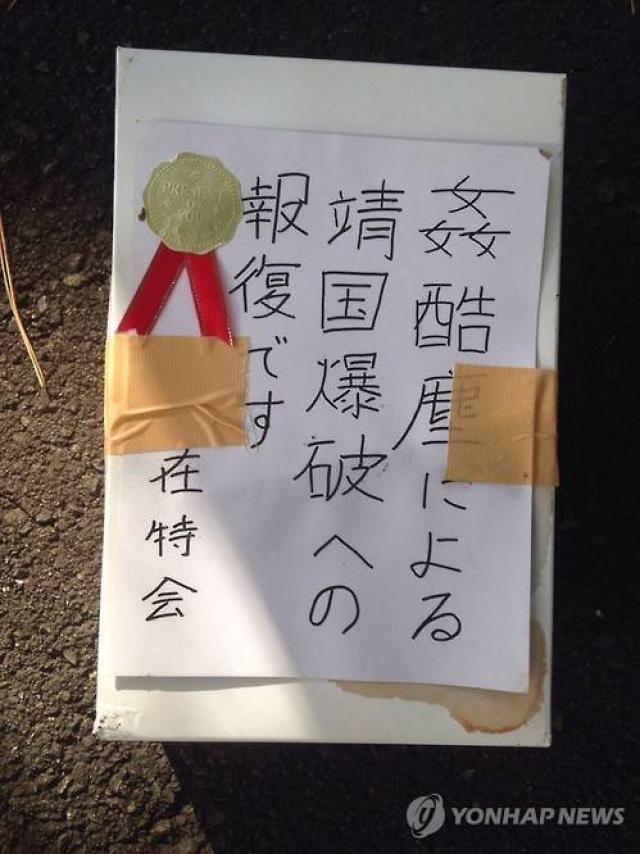 姦酷塵による
靖国爆破への
報復です
在特会
PRESENT
YOU
YONHAP NEWS